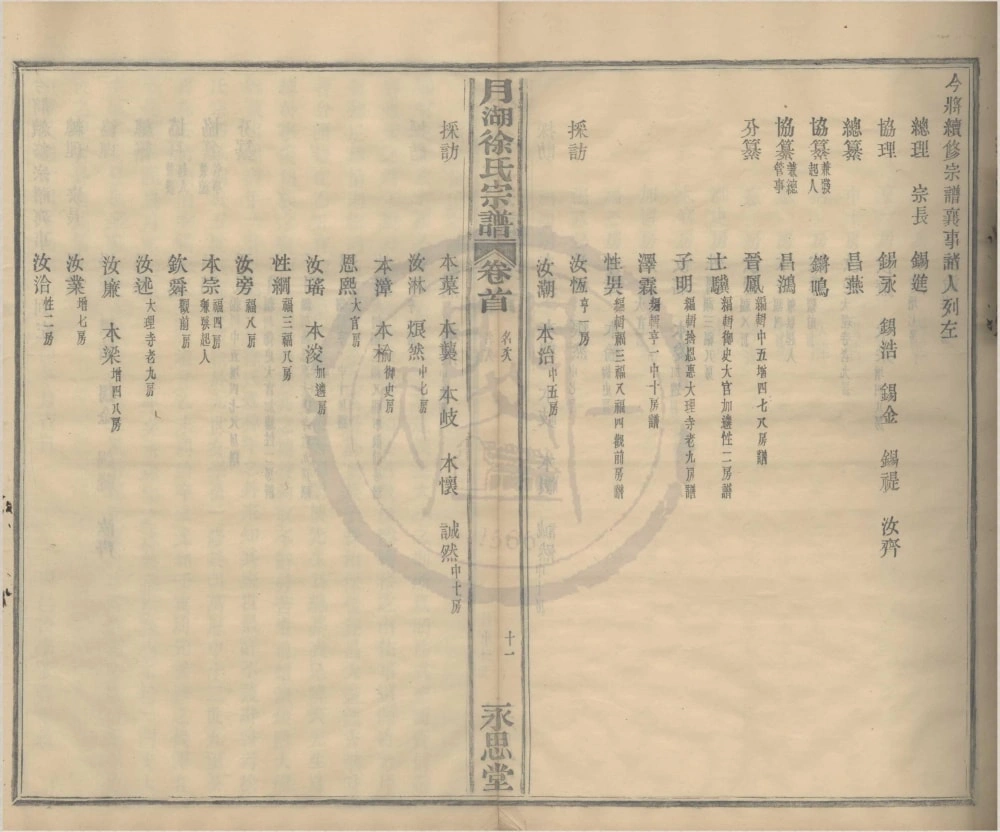 今將續修宗譜襄事諸人列左
總理 宗長 錫進
協理 錫永 錫浩 錫金 錫禔 汝齊
總纂 昌燕
協纂兼發起人 鏘鳴
協纂兼總管事 昌鴻
分纂 晉鳳編輯中五增四七八房譜
士驥編輯御史大官加遠性二房譜
子明編輯捨恩惠大理寺老九房譜
澤霖編輯亨一中十房譜
性與編輯福三福又福四觀前房譜
採訪 汝恆亨一房
汝潮 本治中五房
月湖徐氏宗譜 卷首 名次 十一 永思堂
採訪 本菓 本襲 本岐 本懷 誠然中十房
汝淋 烺然中七房
本漳 本榆御史房
恩熙大官房
汝瑤 本浚加遠房
性綱福三福又房
汝旁福八房
本宗福四房兼發起人
欽舜觀前房
汝述大理寺老九房
汝廉 本梁增四八房
汝業增七房
汝洽性二房